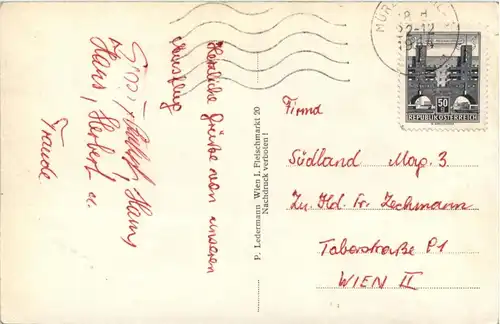 Herzliche Grüße von unseren
Ausflug
Hans, Herbert u.
Traude
P. Ledermann Wien I, Fleischmarkt 20
Nachdruck verboten!
50
REPUBLIK ÖSTERREICH
Firma
Südland Mag. 3
Zu. Hd. Fr. Zechmann
Taborstraße 81
WIEN II